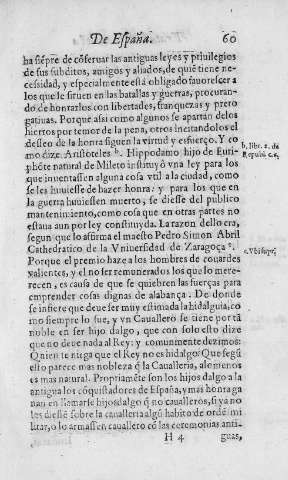 De España. 60
ha siẽpre de cõseruar las antiguas leyes y priuilegios
de sus subditos, amigos y aliados, de quiẽ tiene ne-
cessidad, y especialmente está obligado fauorescer a
los que le siruen en las batallas y guerras, procuran-
do de honrarlos con libertades, franquezas y prero
gatiuas. Porque assi como algunos se apartan de los
hierros por temor de la pena, otros incitandolos el
desseo de la honra siguen la virtud y esfuerço. Y co
mo dize Aristoteles b. Hippodamo hijo de Euri-
b. libr. 2. de
Repub. c. 6.
phõte natural de Mileto instituyó vna ley para los
que inuentassen alguna cosa vtil a la ciudad, como
se les huuiesse de hazer honra: y para los que en
la guerra huuiessen muerto, se diesse del publico
mantenimiento, como cosa que en otras partes no
estaua aun por ley constituyda. La razon dello era,
segun que lo affirma el maestro Pedro Simon Abril
Cathedratico de la Vniuersidad de Zaragoça c.
c. Vbi supr.
Porque el premio haze a los hombres de couardes
valientes, y el no ser remunerados los que lo mere-
recen, es causa de que se quiebren las fuerças para
emprender cosas dignas de alabança. De donde
se infiere que deue ser muy estimada la hidalguia, co
mo siempre lo fue, y vn Cauallero se tiene por tã
noble en ser hijo dalgo, que con solo esto dize
que no deue nada al Rey: y comunmente dezimos:
Quien te niega que el Rey no es hidalgo? Que segũ
esto parece mas nobleza q̃ la Caualleria, alomenos
es mas natural. Propriamẽte son los hijos dalgo a la
antigua los cõquistadores de España, y mas honra ga
nan en llamarse hijosdalgo q̃ no caualleros, si ya no
les diessẽ sobre la caualleria algũ habito de ordẽ mi
litar, o lo armassen cauallero cõ las ceremonias anti-
H 4 guas,